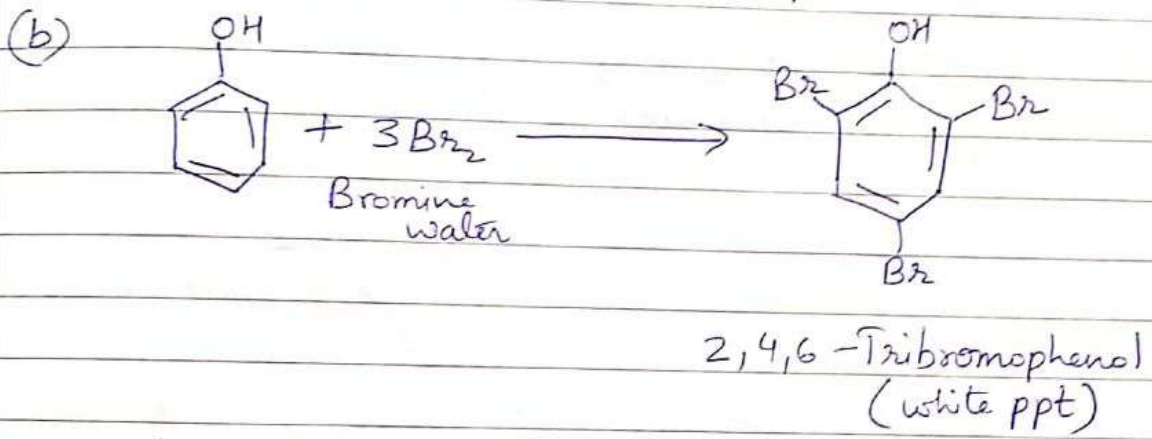 (b)
OH
+ 3Br₂
Bromine
water
OH
Br
Br
Br
2,4,6-Tribromophenol
(white ppt)